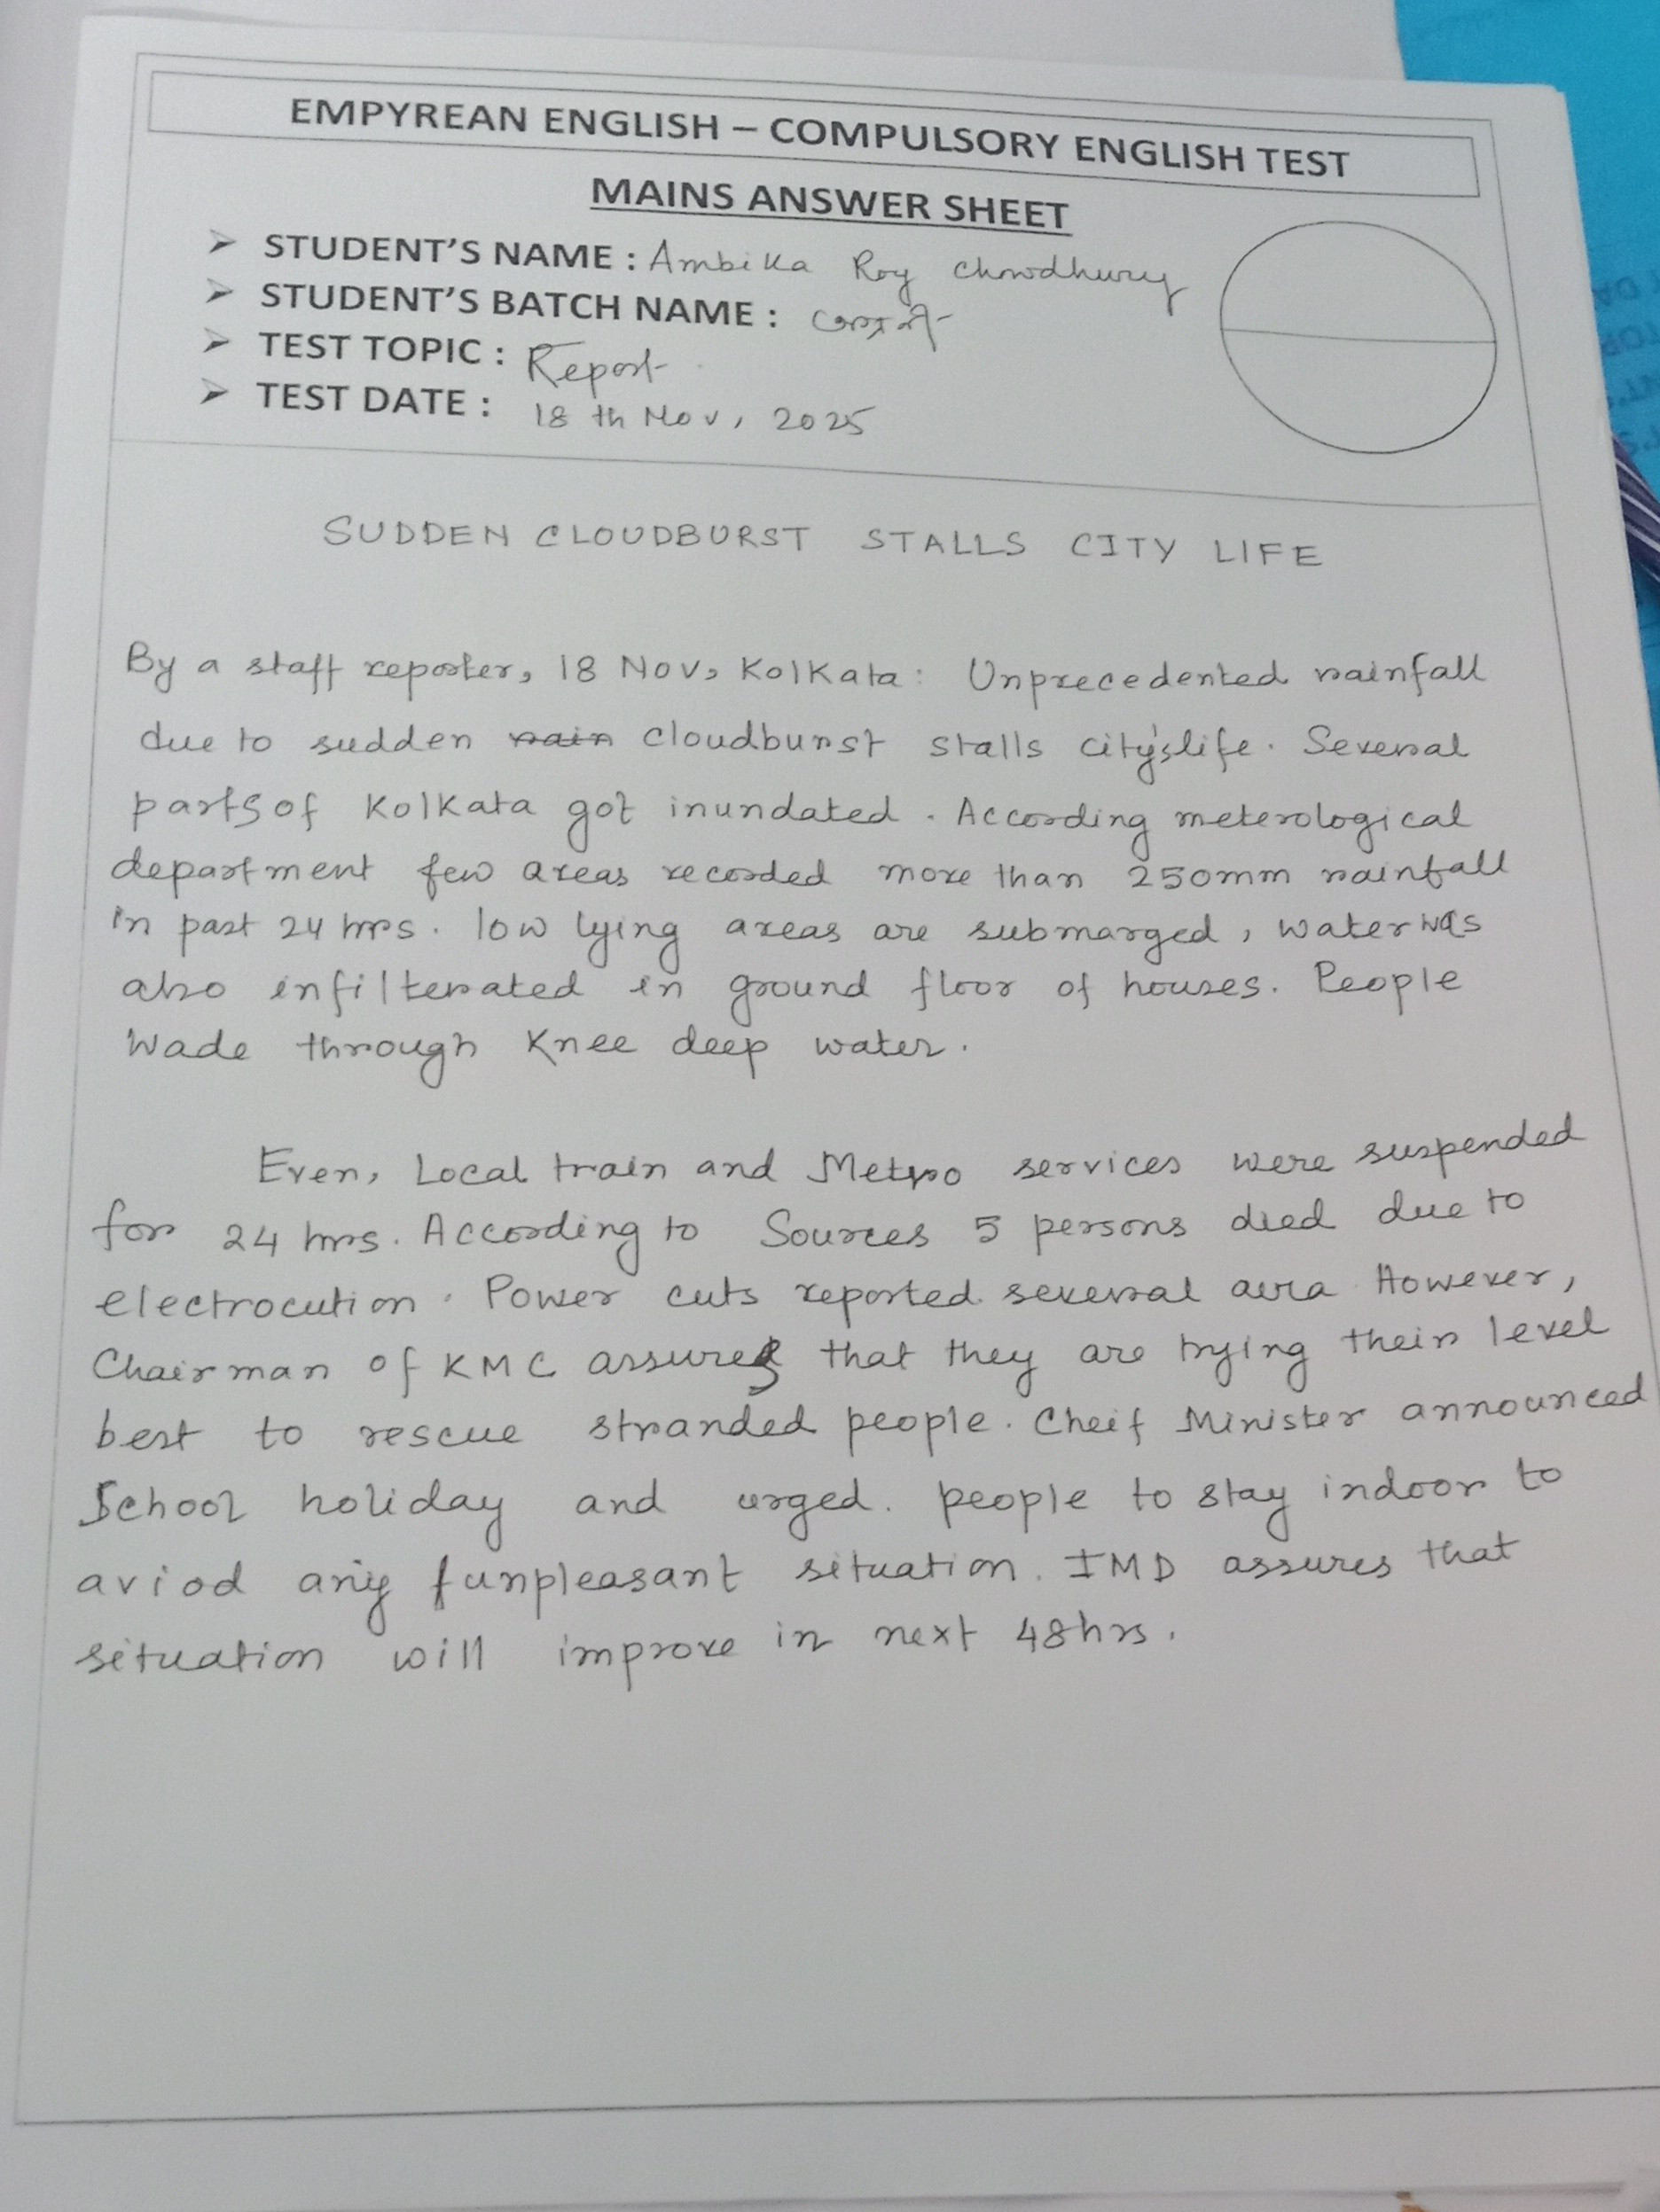 EMPYREAN ENGLISH – COMPULSORY ENGLISH TEST
MAINS ANSWER SHEET
➢ STUDENT'S NAME : Ambika Roy Chowdhury
➢ STUDENT'S BATCH NAME :
➢ TEST TOPIC : Report
➢ TEST DATE : 18 th Nov, 2025
SUDDEN CLOUDBURST STALLS CITY LIFE
By a staff reporter, 18 Nov, Kolkata: Unprecedented rainfall
due to sudden rain cloudburst stalls city's life. Several
parts of Kolkata got inundated. According meterological
department few areas recorded more than 250mm rainfall
in past 24 hrs. low lying areas are submarged, water was
also infilterated in ground floor of houses. People
wade through knee deep water.
Even, Local train and Metro services were suspended
for 24 hrs. According to Sources 5 persons died due to
electrocution. Power cuts reported several However,
Chairman of KMC assures that they are trying their level
best to rescue stranded people. Cheif Minister announced
School holiday and urged. people to stay indoor to
aviod any unpleasant situation. IMD assures that
situation will improve in next 48hrs.